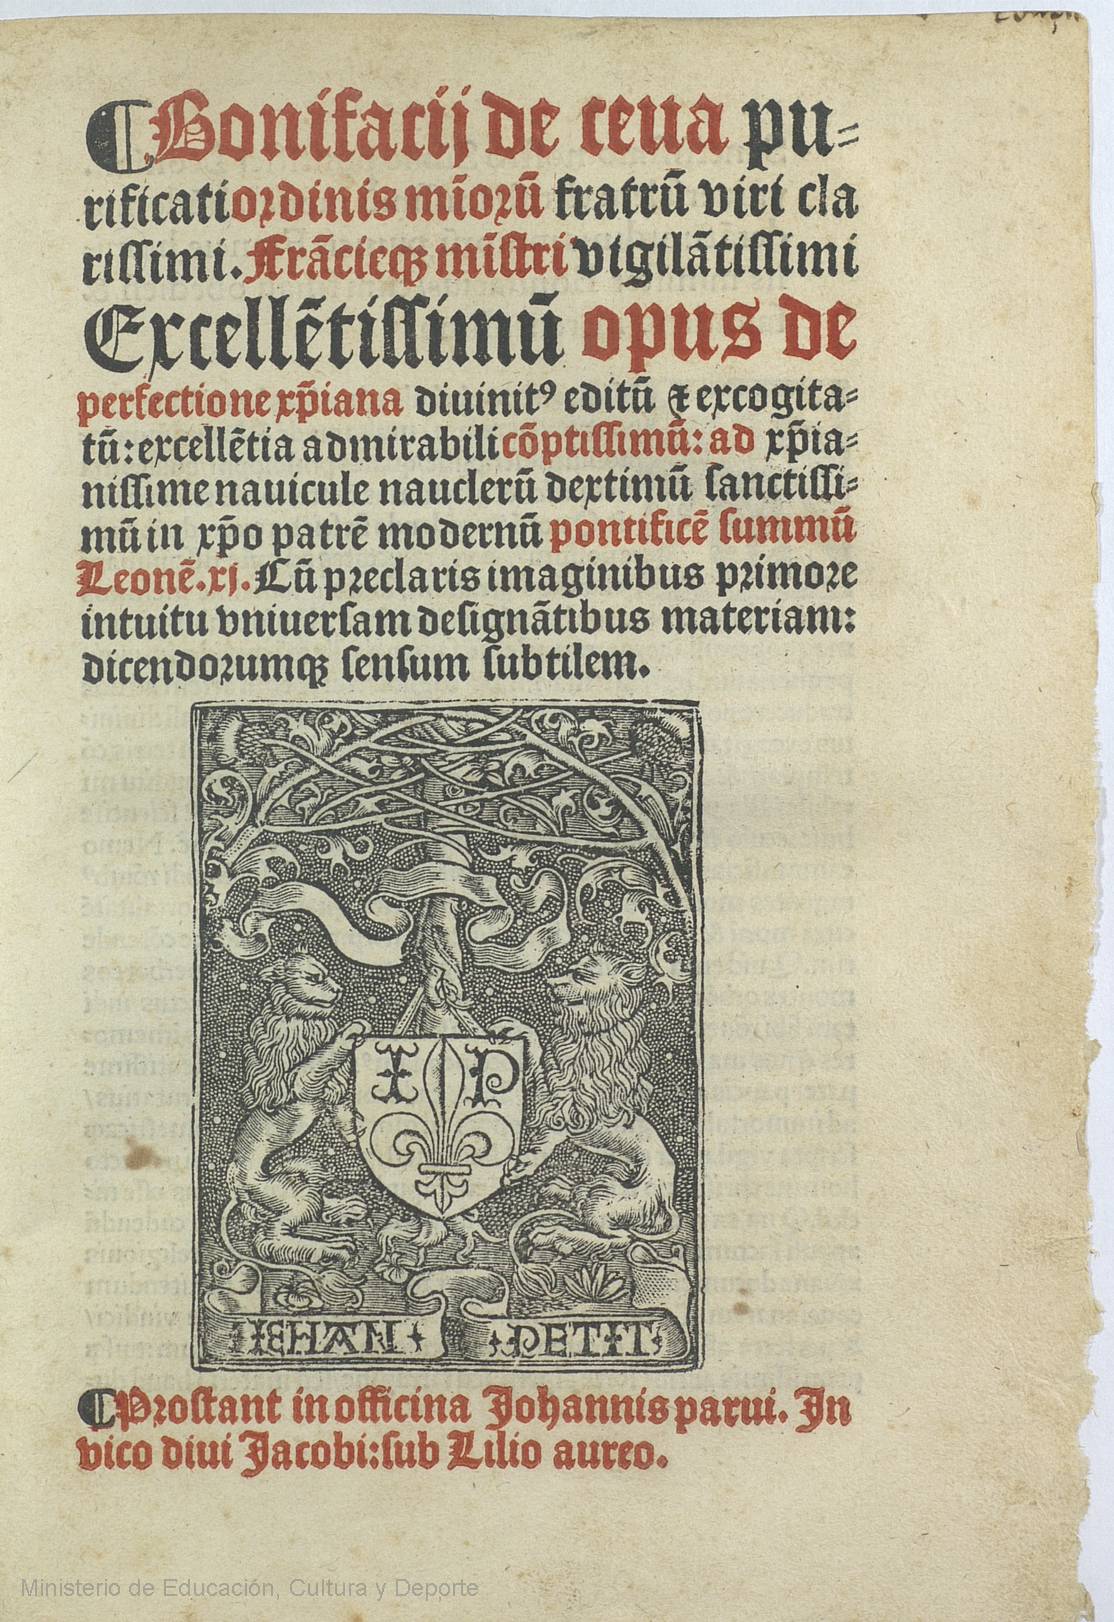 ¶Bonifacij de ceua pu⸗
rificati ordinis mīorū fratrū viri cla
rissimi. Frācieqꝫ mīstri vigilātissimi
Excellētissimū opus de
perfectione xp̄iana diuinitꝰ editū ⁊ excogita⸗
tū: excellētia admirabili cōptissimū: ad xp̄ia⸗
nissime nauicule nauclerū dextimū sanctissi⸗
mū in xp̄o patrē modernū pontificē summū
Leonē.xj. Cū preclaris imaginibus primore
intuitu vniuersam designātibus materiam:
dicendorumqꝫ sensum subtilem.
I P
IEHAN PETIT
¶Prostant in officina Johannis parui. In
vico diui Jacobi: sub Lilio aureo.
Ministerio de Educación, Cultura y Deporte